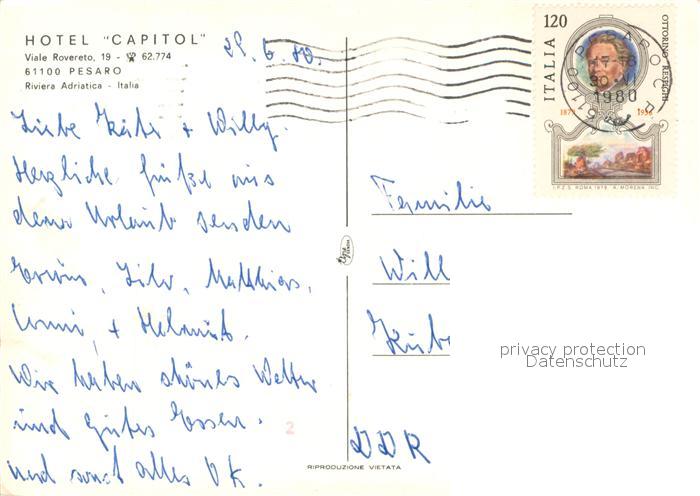 HOTEL "CAPITOL"
Viale Rovereto, 19 - ☎ 62.774
61100 PESARO
Riviera Adriatica - Italia
29.6.80.
Liebe Käte + Willy.
Herzliche Grüße aus
dem Urlaub senden
Erwin, Silv, Matthias,
Unni, + Helmut.
Wir haben schönes Wetter
und gutes Essen.
und sonst alles OK.
2
RIPRODUZIONE VIETATA
120
ITALIA
OTTORINO RESPIGHI
1879 1936
I.P.Z.S. ROMA 1979 A. MORENA INC.
61100 PESARO C.P.
1980
Familie
Will
DDR
privacy protection
Datenschutz